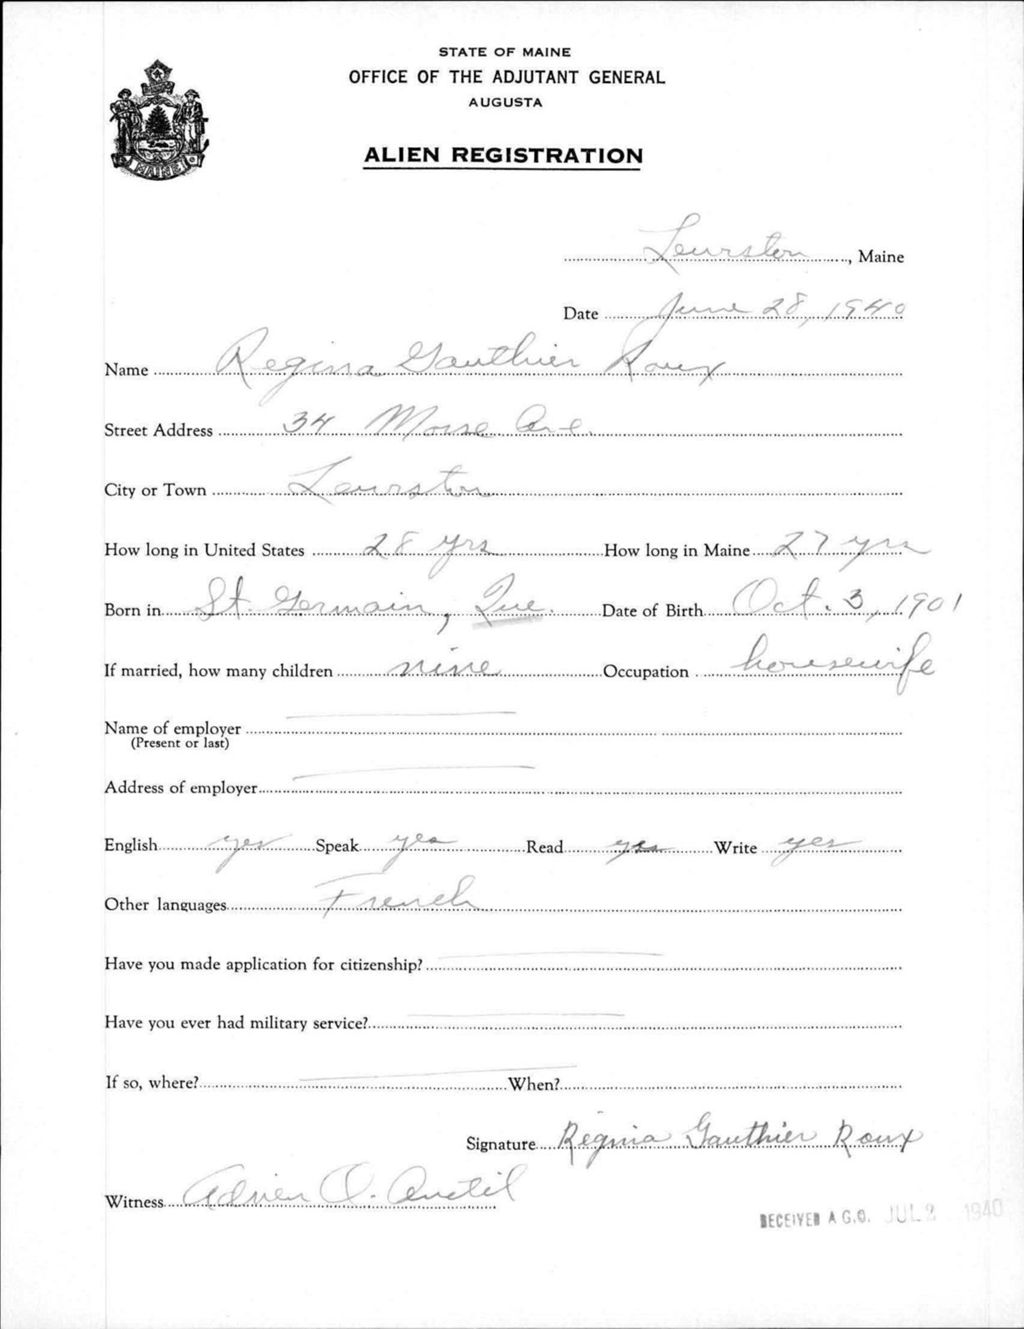 STATE OF MAINE
OFFICE OF THE ADJUTANT GENERAL
AUGUSTA
ALIEN REGISTRATION
MAINE
Lewiston, Maine
Date June 28, 1940
Name Regina Gauthier Roux
Street Address 34 Morse Ave.
City or Town Lewiston
How long in United States 28 yrs How long in Maine 27 yrs
Born in St. Germain, Que. Date of Birth Oct. 3, 1901
If married, how many children nine Occupation housewife
Name of employer
(Present or last)
Address of employer
English yes Speak yes Read yes Write yes
Other languages French
Have you made application for citizenship?
Have you ever had military service?
If so, where? When?
Signature Regina Gauthier Roux
Witness Adrien O. Anctil
RECEIVED A.G.O. JUL 2 1940